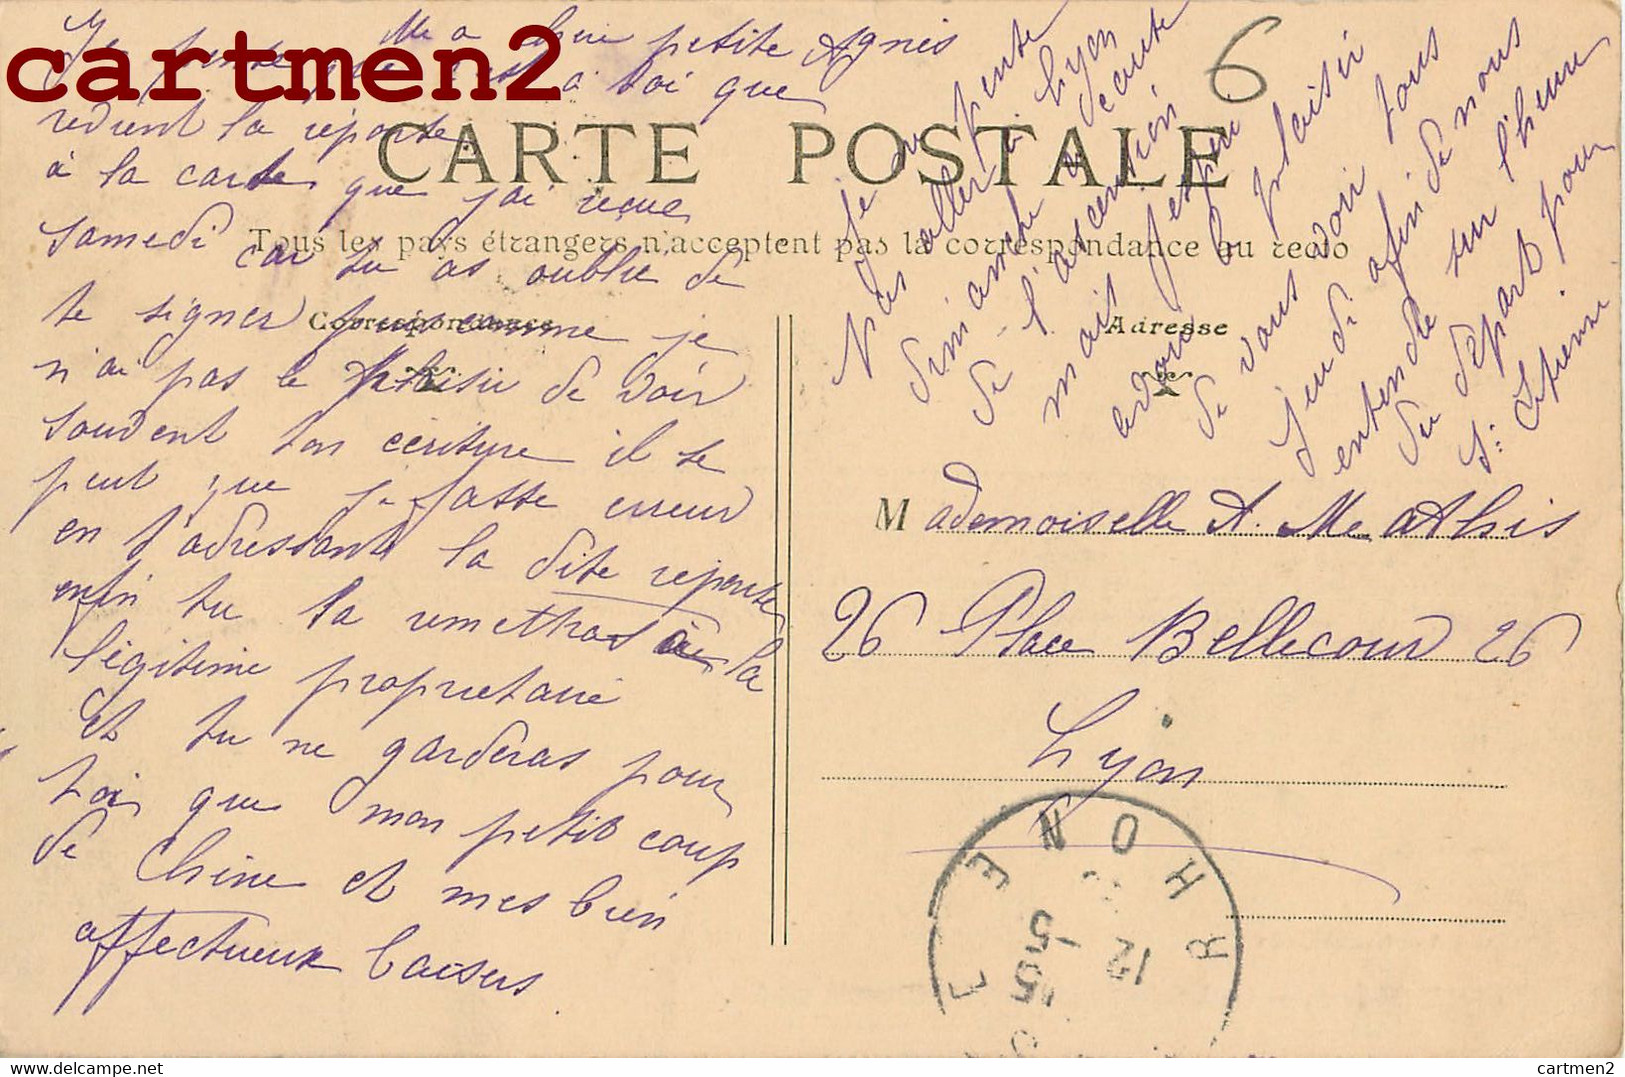 cartmen2
6
Ma chère petite Agnès
Je pense que c'est à toi que
revient la réponse
à la carte que j'ai reçue
samedi car tu as oublié de
te signer comme je
n'ai pas le plaisir de voir
souvent ton écriture il se
peut que je fasse erreur
en t'adressant la dite réponse
enfin tu la remettras à la
légitime propriétaire
et tu ne garderas pour
toi que mon petit coup
de Chine et mes bien
affectueux baisers
CARTE POSTALE
Tous les pays étrangers n'acceptent pas la correspondance au recto
Correspondance
Adresse
Je ne pense
pas aller à Lyon
dimanche à cause
de l'ascension
mais j'espère
avoir le plaisir
de vous voir tous
Jeudi afin de nous
entendre sur l'heure
du départ pour
St Etienne
Mademoiselle A. Mathis
26 Place Bellecour 26
Lyon
RHONE
12 -5
15
cartmen2